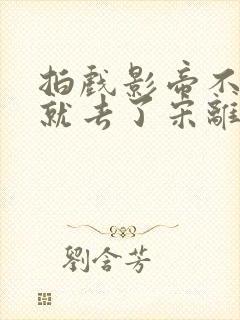 拍戲影帝不
就去了宋離
劉含芳